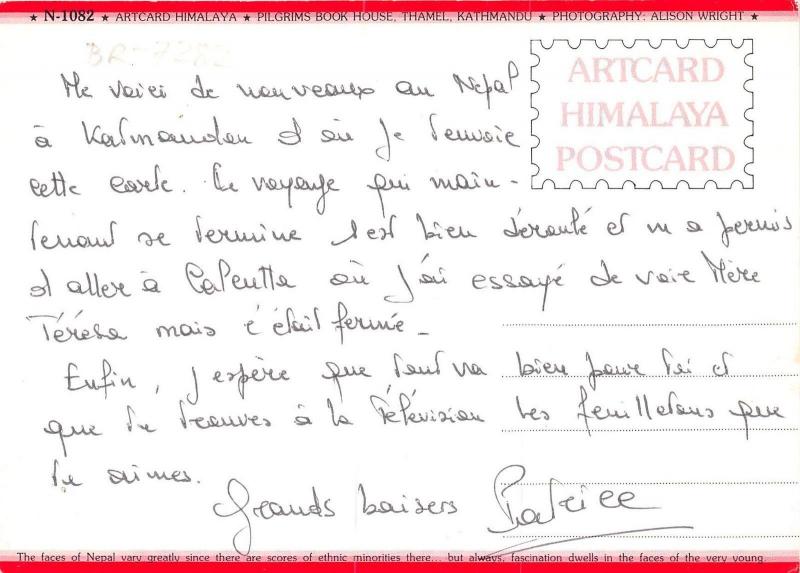 ★ N-1082 ★ ARTCARD HIMALAYA ★ PILGRIMS BOOK HOUSE, THAMEL, KATHMANDU ★ PHOTOGRAPHY: ALISON WRIGHT ★
BR-7282
ARTCARD
HIMALAYA
POSTCARD
Me voici de nouveaux au Népal
à Katmandou d'où je t'envoie
cette carte. Ce voyage qui main-
tenant se termine s'est bien déroulé et m'a permis
d'aller à Calcutta où j'ai essayé de voir Mère
Térésa mais c'était fermé.
Enfin, j'espère que tout va bien pour toi et
que tu trouves à la télévision les feuilletons que
tu aimes.
Grands baisers Patrice
The faces of Nepal vary greatly since there are scores of ethnic minorities there... but always, fascination dwells in the faces of the very young.